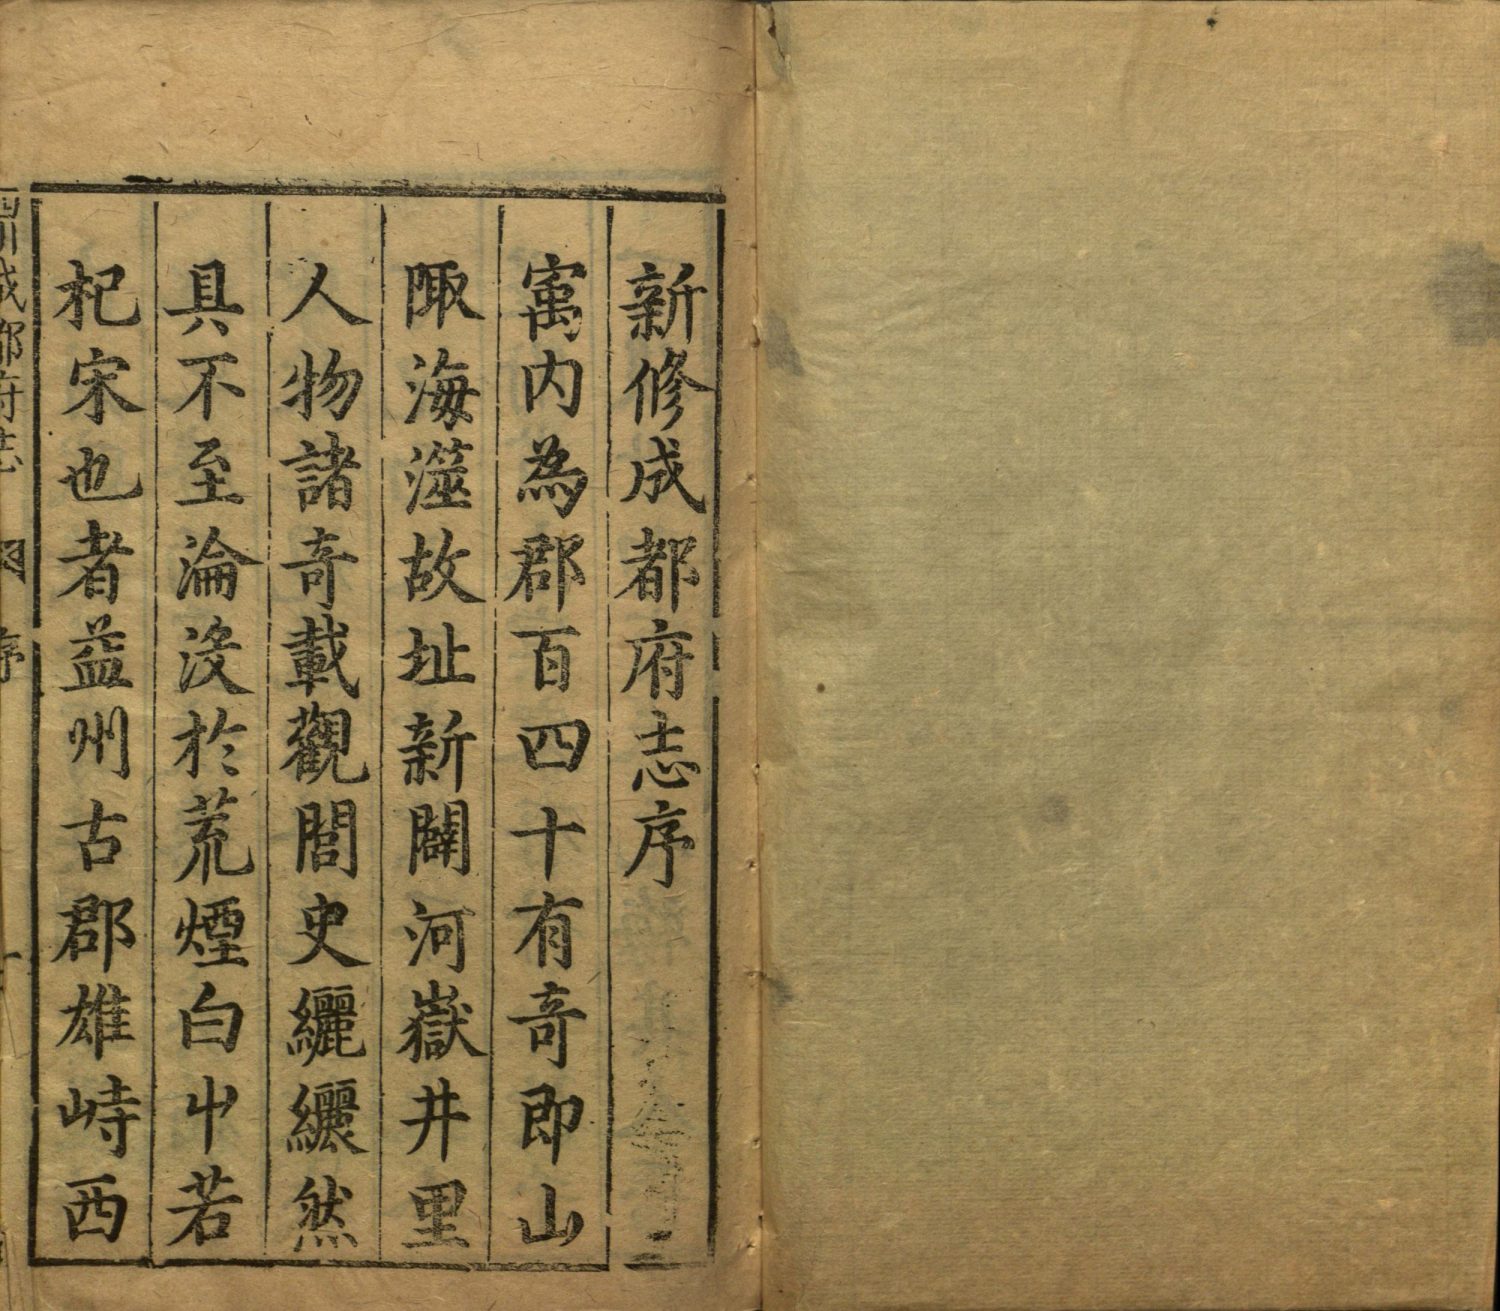 新修成都府志序
寓内為郡百四十有奇即山
陬海澨故址新闢河嶽井里
人物諸奇載觀閭史纚纚然
具不至淪没於荒煙白屮若
杞宋也者益州古郡雄峙西
四川成都府志 序